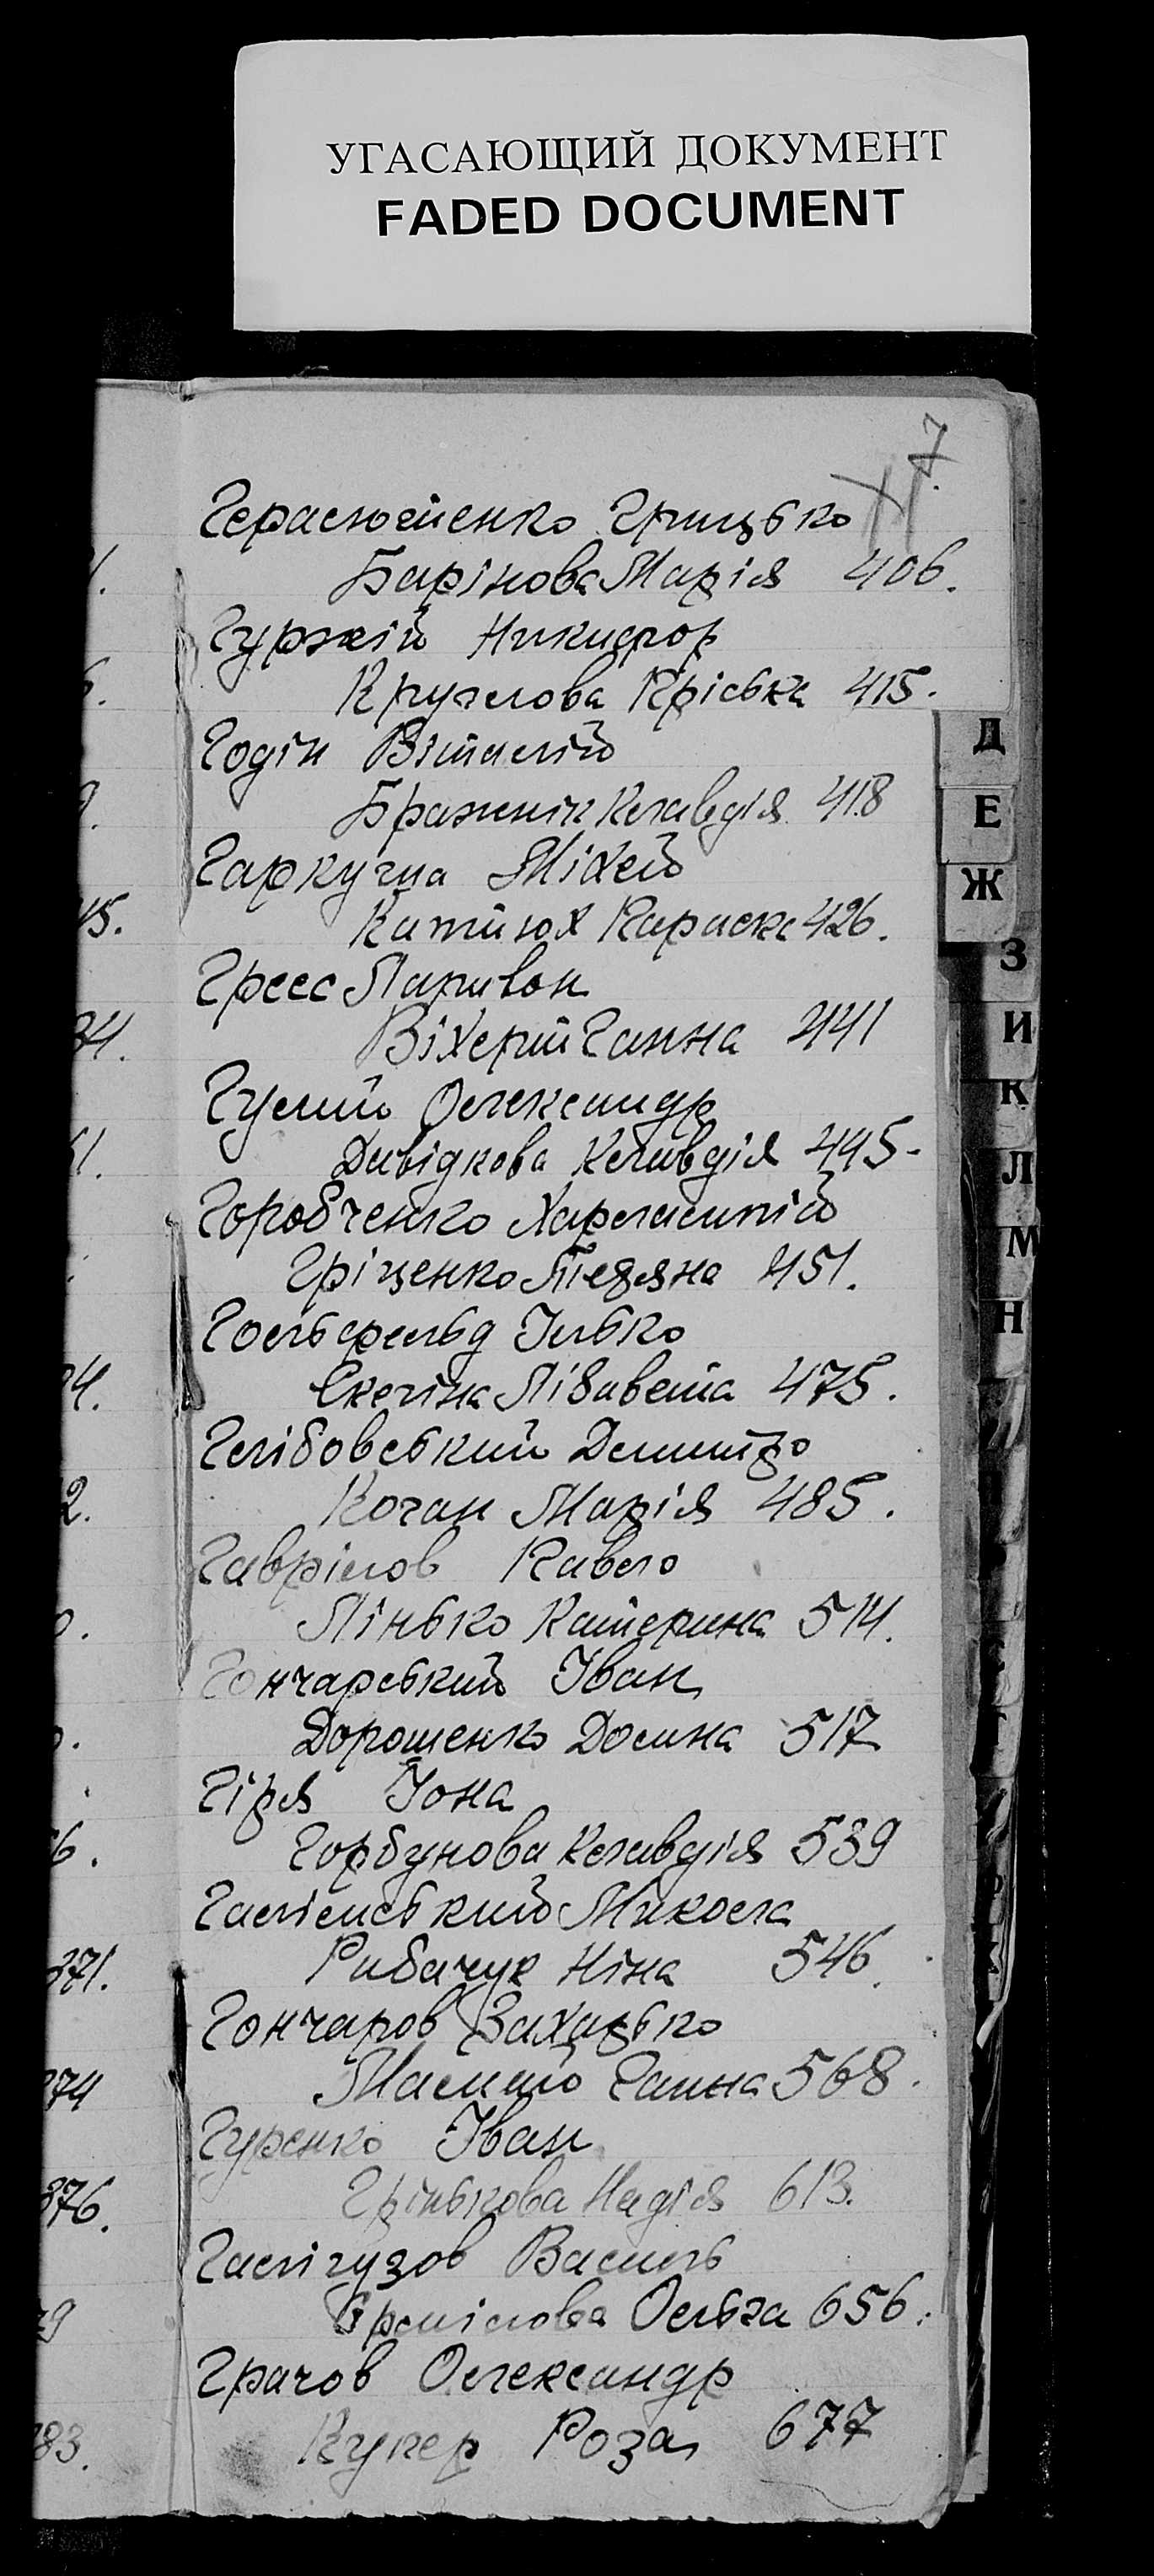 УГАСАЮЩИЙ ДОКУМЕНТ
FADED DOCUMENT
7
Герасюменко Грицько
Барінова Марія 406.
Гуржій Никифор
Круглова Пріська 415.
Годін Віталій
Бражнік Клавдія 418
Гаркуша Міхей
Параска 426.
Гресс Ларивон
Ганна 441
Гулий Олександр
Давідкова Клавдія 445-
Горобченко Харлампій
Гріценко Тетяна 451.
Гольсфельд Ілько
Лізавета 475.
Глібовський Дмитро
Коган Марія 485.
Гаврілов Павло
Лінько Катерина 514.
Гончарський Іван
Дорошенко Домна 517
Гіря Іона
Горбунова Клавдія 539
Микола
Рибачук Ніна 546.
Гончаров Захарько
Ганна 568.
Гуренко Іван
Грінькова Надія 613.
Галігузов Василь
Єрмілова Ольга 656.
Грачов Олександр
Купер Роза 677
Д
Е
Ж
З
И
К
Л
М
Н
45.
371.
374
376.